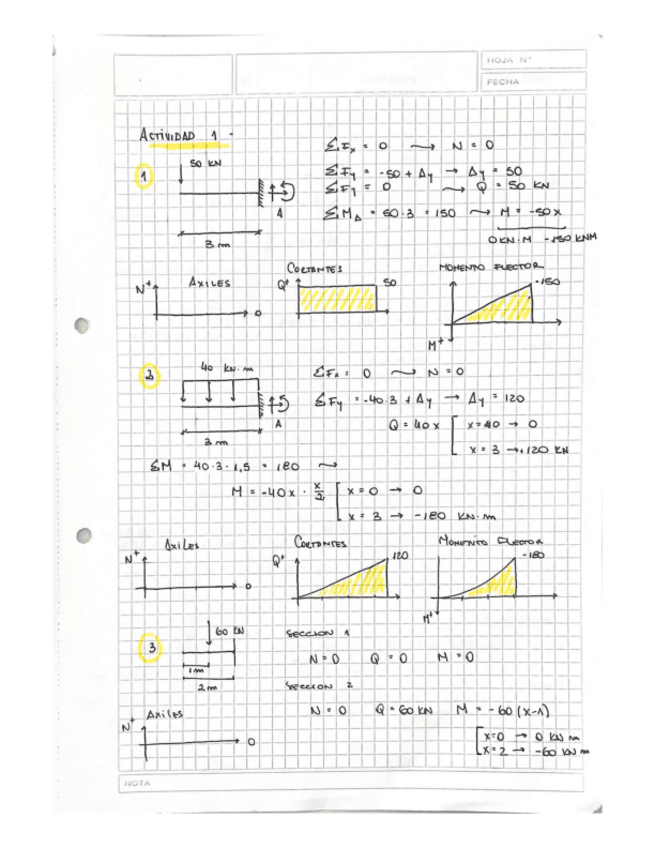 HOJA Nº
FECHA
ACTIVIDAD 1 -
1
50 KN
A
3 m
ΣFx = 0 → N = 0
ΣFy = -50 + Ay → Ay = 50
ΣFy = 0 → Q = 50 KN
ΣMA = 50·3 = 150 → M = -50x
0 KN·M -150 KNM
N+ AXILES 0
CORTANTES
Q+ 50
MOMENTO FLECTOR
-150
M+
2
40 KN·m
A
3 m
ΣFx = 0 → N = 0
ΣFy = -40·3 + Ay → Ay = 120
Q = 40x
x=40 → 0
x = 3 → +120 KN
ΣM = 40·3·1,5 = 180 →
M = -40x · x/2
x = 0 → 0
x = 3 → -180 KN·m
N+ Axiles 0
CORTANTES
Q+ 120
MOMENTO FLECTOR
-180
M+
3
60 KN
1m
2m
SECCION 1
N=0 Q=0 M=0
SECCION 2
N=0 Q=60 KN M = -60(x-1)
x=0 → 0 KN m
x=2 → -60 KN m
N+ Axiles 0
NOTA